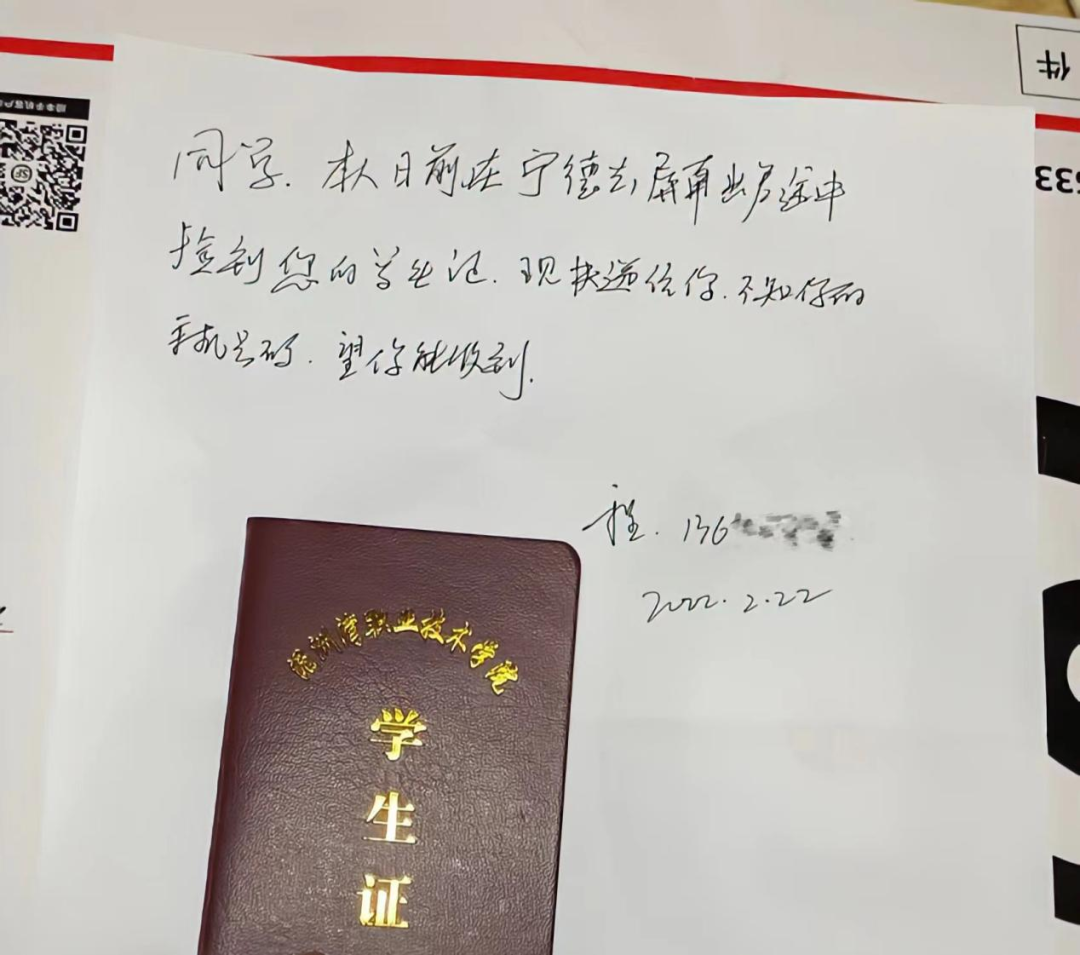 件
顺丰手机客户
SF
533
同学. 本人日前在宁德去屏南出差途中
捡到您的学生证. 现快递给你. 不知你的
手机号码. 望你能收到.
程. 136
2022.2.22
湄洲湾职业技术学院
学
生
证